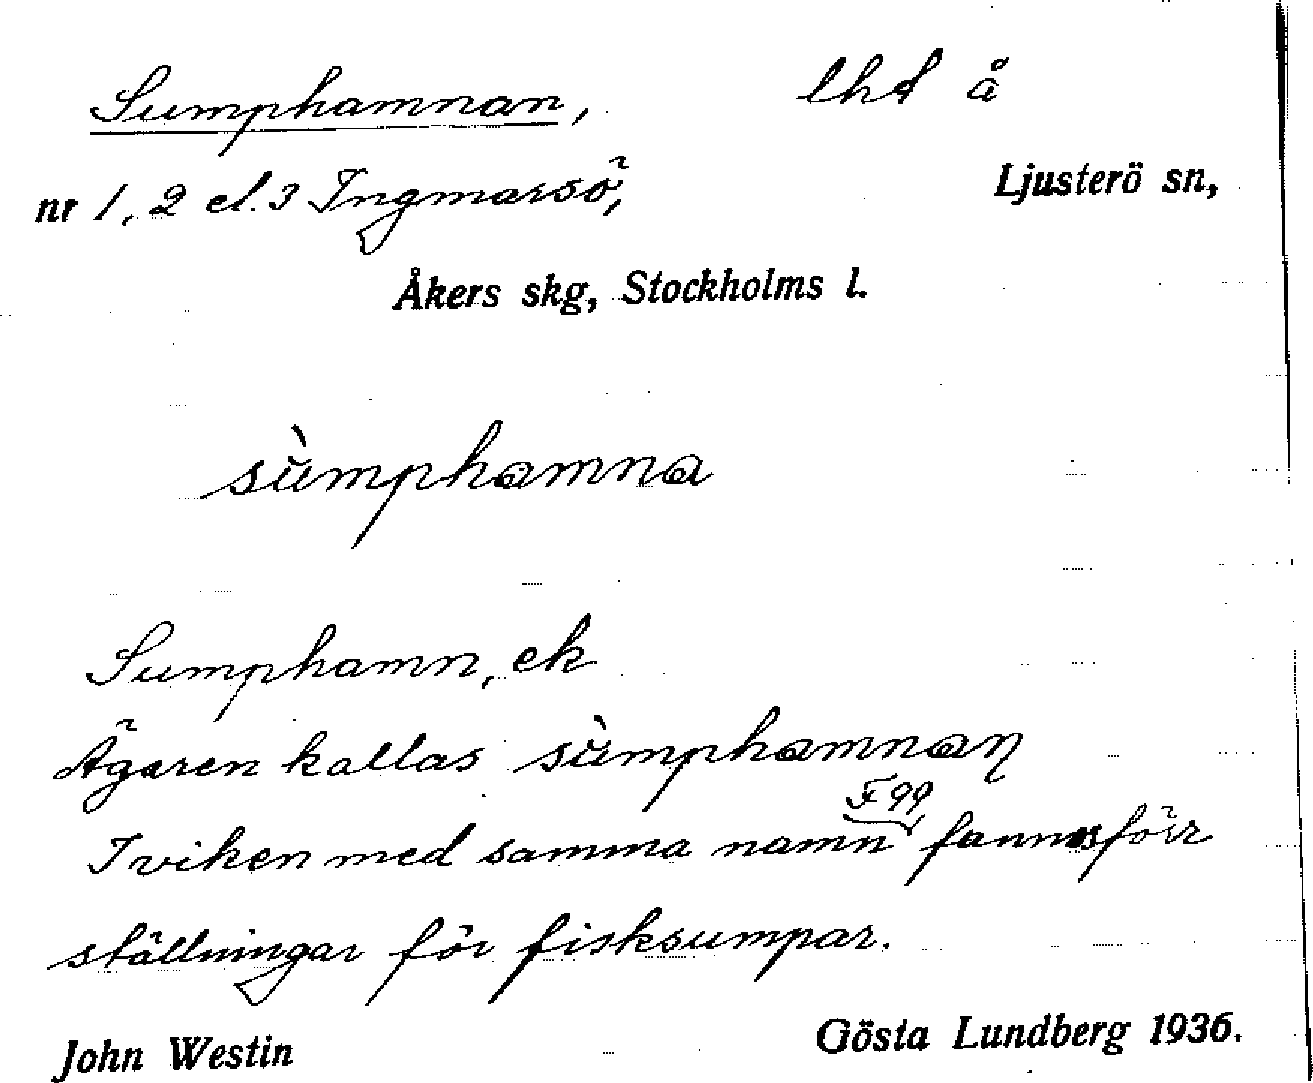 Sumphamnan, lhd å
nr 1, 2 el. 3 Ingmarsö, Ljusterö sn,
Åkers skg, Stockholms l.
sùmphamna
Sumphamn, ek
Ägaren kallas sùmphamnaɳ
F 99
I viken med samma namn fanns förr
ställningar för fisksumpar.
John Westin Gösta Lundberg 1936.